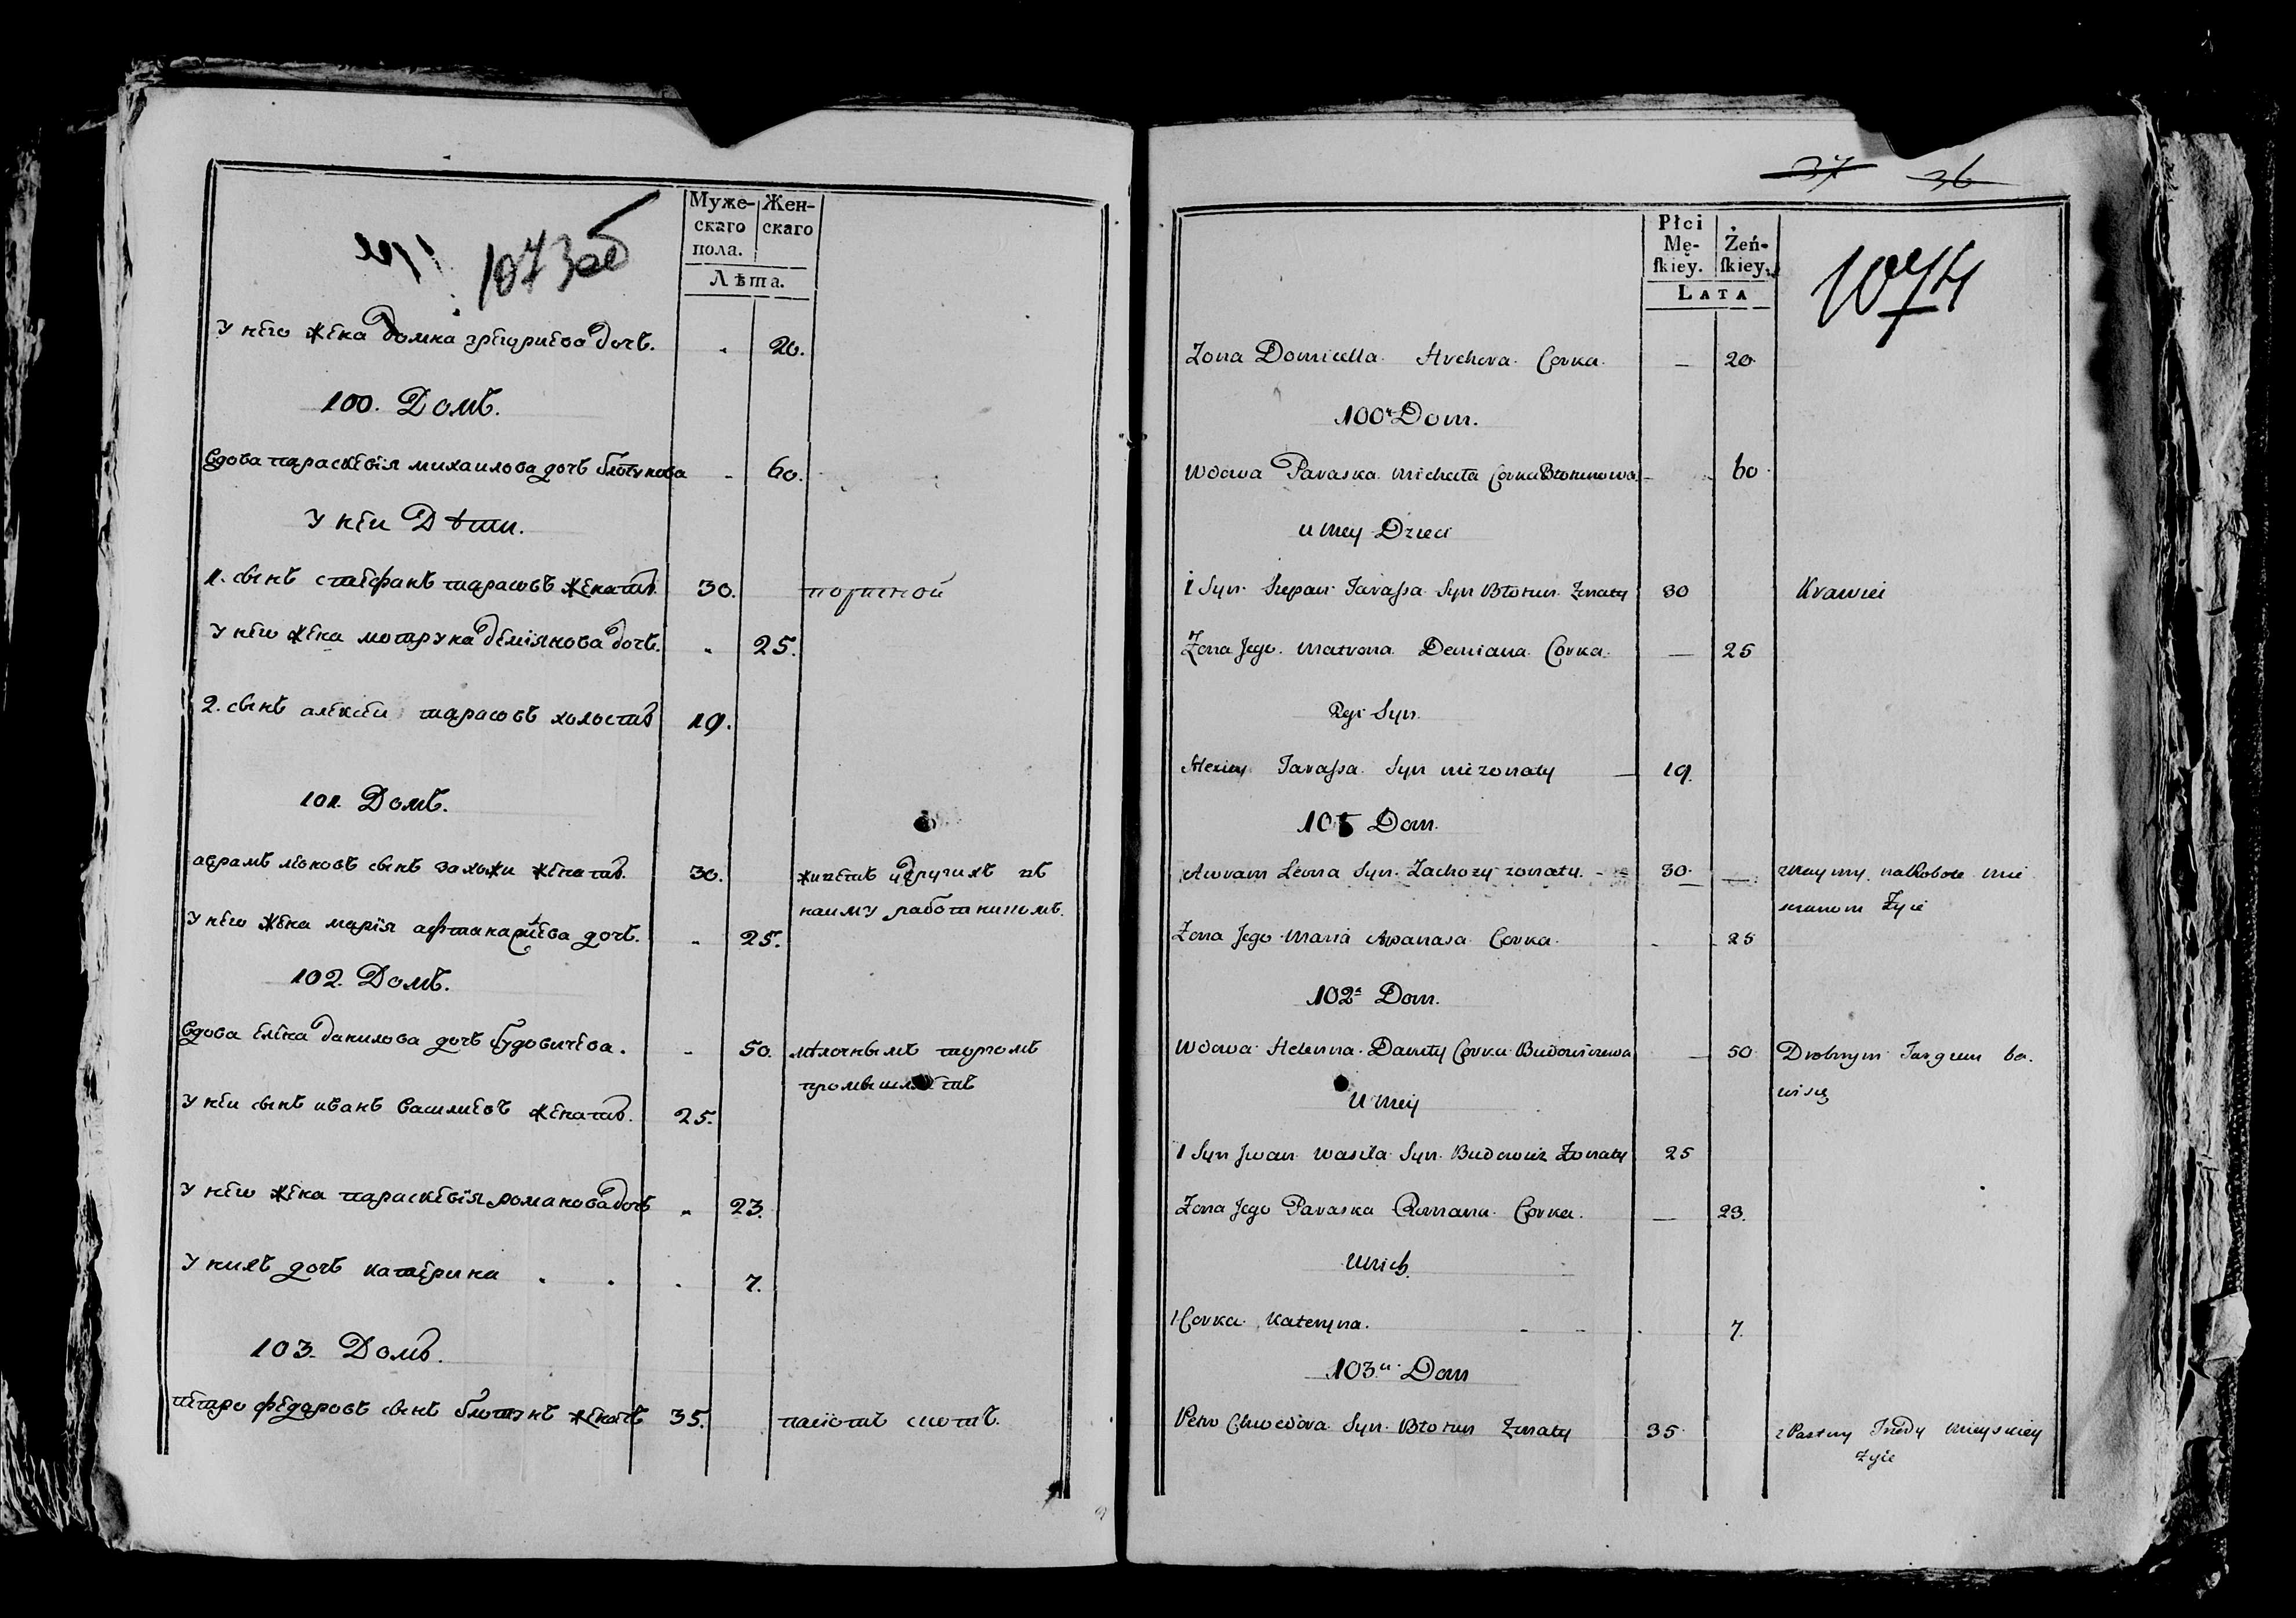 1073об
Муже-
скаго
пола.
Жен-
скаго
Лѣта.
У него жена домка григориева дочь. 20.
100. Домъ.
Вдова параскевия михаилова дочь блотунова 60.
У неи Дѣти.
1. сынъ стефанъ тарасовъ женатъ 30. портной
У него жена мотруна демиянова дочь. 25.
2. сынъ алексеи тарасовъ холостъ 19.
101. Домъ.
аврамъ леоновъ сынъ захожи женатъ. 30. живетъ у другихъ въ
найму работникомъ.
У него жена мария афанасиева дочь. 25.
102. Домъ.
Вдова елена данилова дочь будовичева. 50. мѣлочнымъ торгомъ
промышляетъ
У неи сынъ иванъ василиевъ женатъ. 25.
У него жена параскевия романова дочь 23.
У нихъ дочь катерина 7.
103. Домъ.
петро федоровъ сынъ блотунъ женатъ 35. пасетъ скотъ.
37 36
1074
Płci
Mę-
skiey.
Żeń-
skiey.
LATA
Zona Domicella Corka 20
100 Dom.
Wdowa Paraska Michała Corka Błotunowa 60
u Niey Dzieci
1 Syn Stepan Tarassa Syn Błotun Zonaty 30 Krawiec
Zona Jego Matrona Demiana Corka 25
Syn
Alexiey Tarassa Syn niezonaty 19
101 Dom.
Awram Leona Syn Zachozy zonaty 30
Zyie
Zona Jego Maria Apanasa Corka 25
102 Dom.
Wdowa Helenna Daniły Corka Budowiczowa 50 Drobnym Targiem ba-
wi się
U Niey
1 Syn Jwan Wasila Syn Budowicz Zonaty 25
Zona Jego Paraska Romana Corka 23.
U nich
1 Corka Kateryna. 7.
103 Dom
Petro Chwedora Syn Błotun Zonaty 35 z Pastwy Trzody Mieyskiey
Zyie